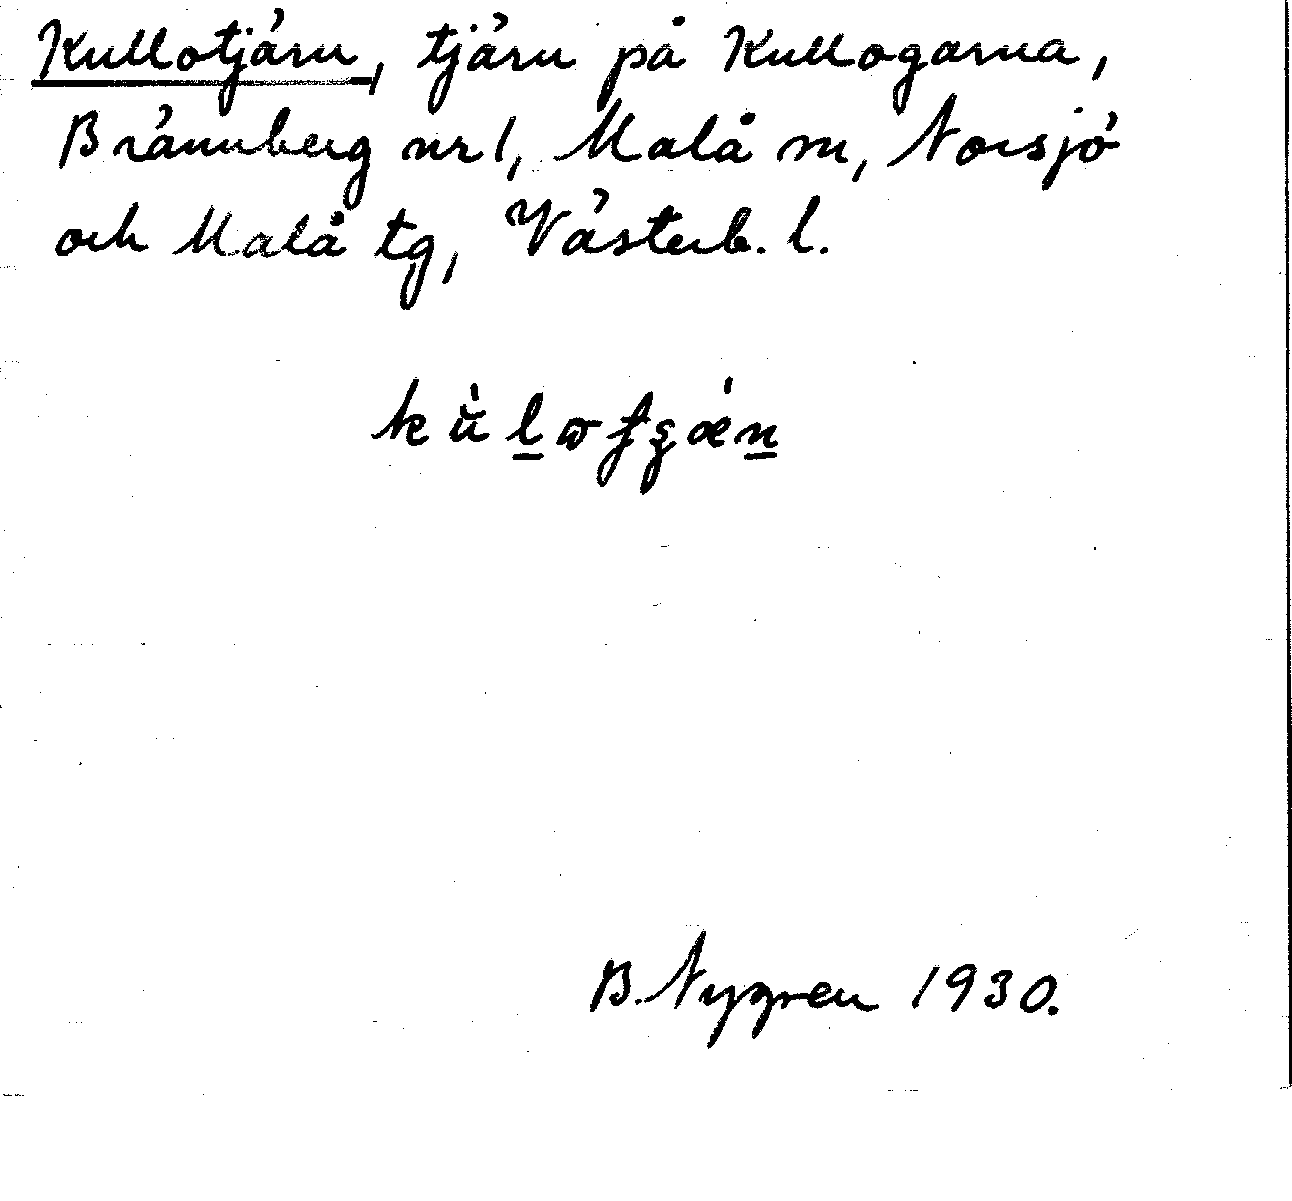 Kullotjärn, tjärn på Kullogarna,
Brännberg nr 1, Malå sn, Norsjö
och Malå tg, Västerb. l.
B. Nygren 1930.